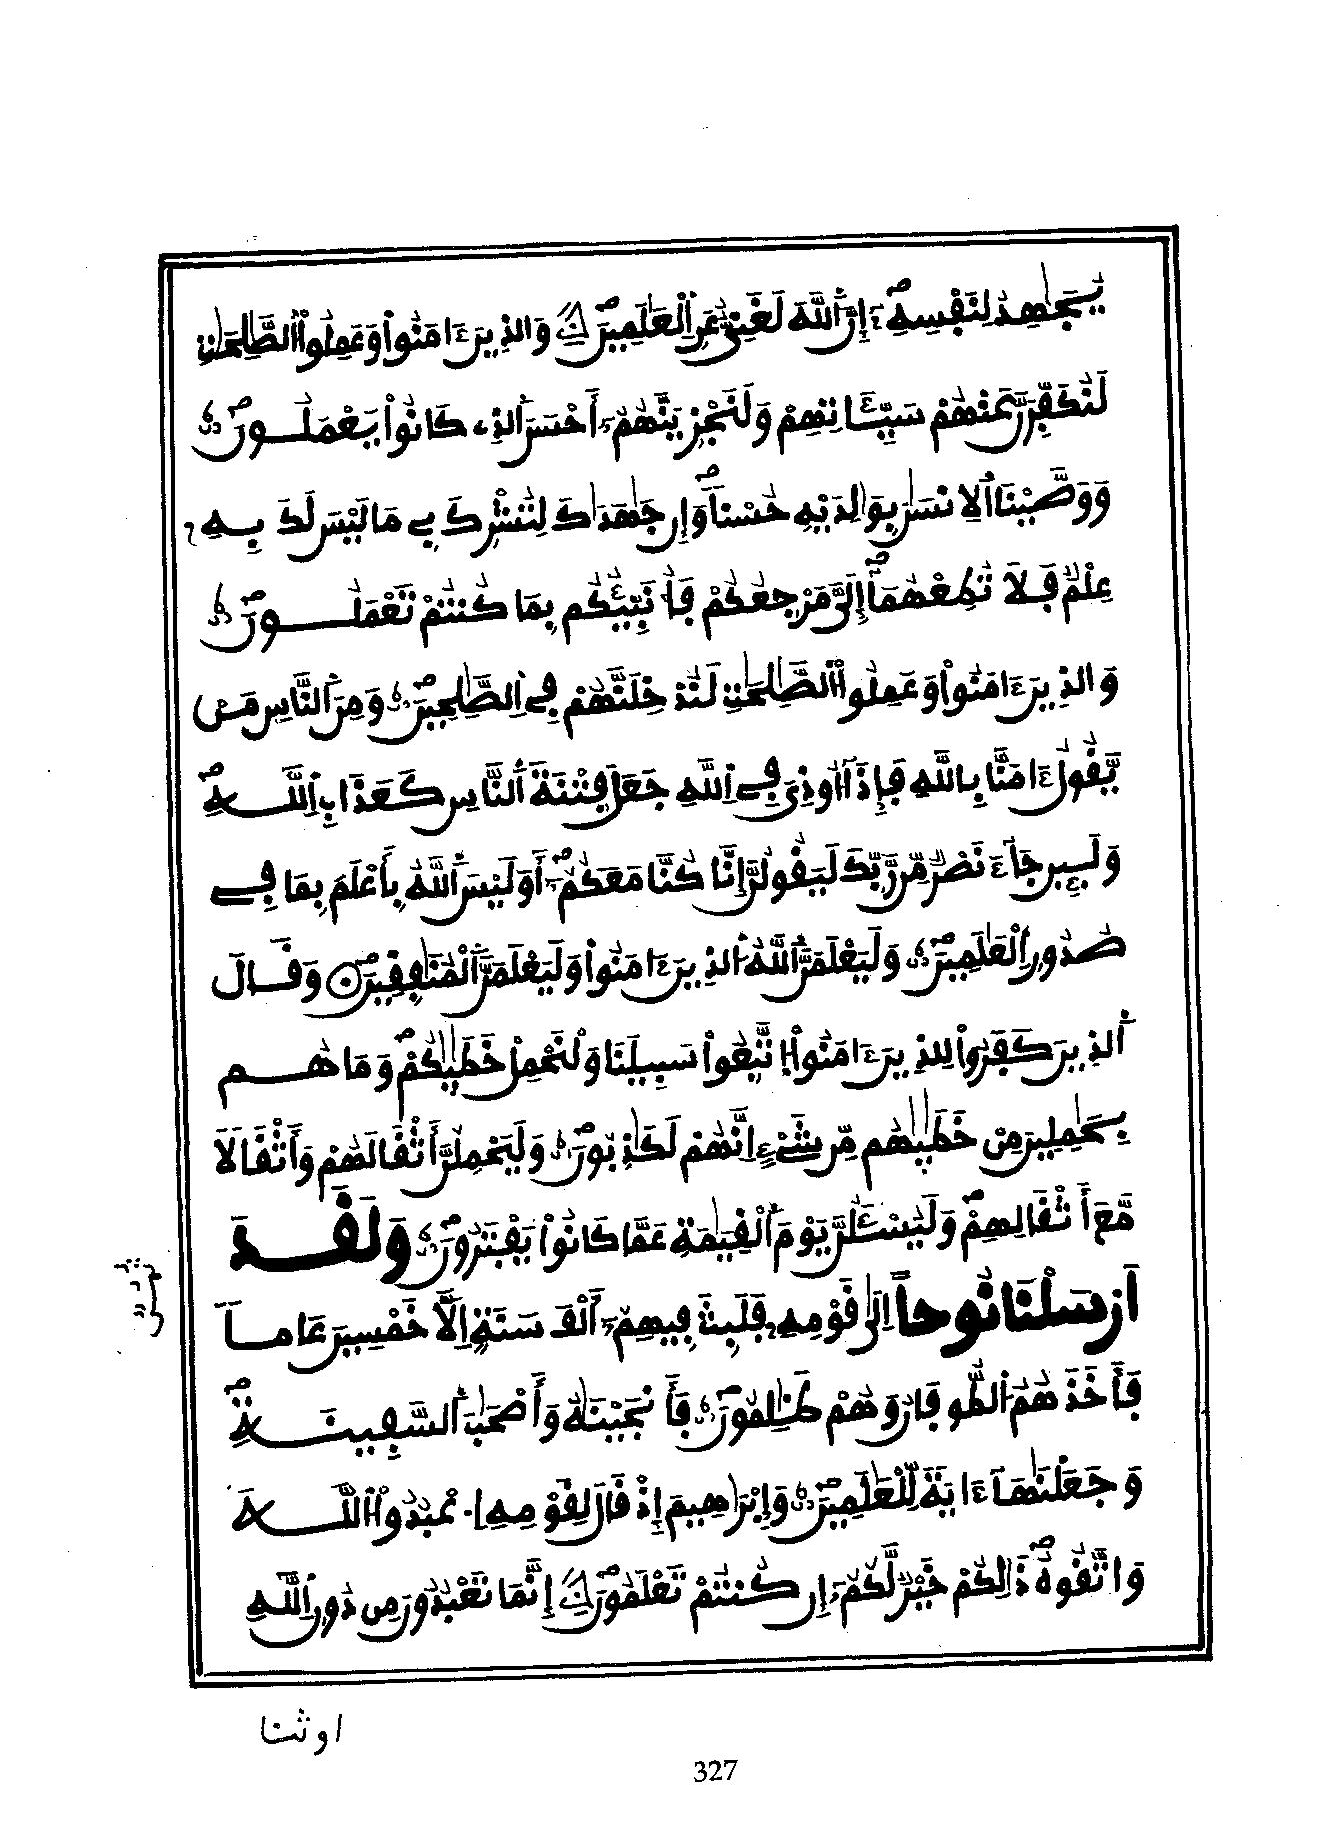 يُجَٰهِدُ لِنَفْسِهِۦٓۖ إِنَّ اَ۬للَّهَ لَغَنِيٌّ عَنِ اِ۬لْعَٰلَمِينَۖ وَالذِينَ ءَامَنُواْ وَعَمِلُواْ اُ۬لصَّٰلِحَٰتِ
لَنُكَفِّرَنَّ عَنْهُمْ سَيِّـَٔاتِهِمْ وَلَنَجْزِيَنَّهُمُۥٓ أَحْسَنَ اَ۬لذِے كَانُواْ يَعْمَلُـــونَۖ
وَوَصَّيْنَا اَ۬لِانسَٰنَ بِوَٰلِدَيْهِ حُسْناٗۖ وَإِن جَٰهَدَٰكَ لِتُشْرِكَ بِے مَا لَيْسَ لَكَ بِــهِۦ
عِلْمٞ فَلَا تُطِعْهُمَآۖ إِلَيَّ مَرْجِعُكُمْ فَأُنَبِّئُكُم بِمَا كُنتُمْ تَعْمَلُـــونَۖ
وَالذِينَ ءَامَنُواْ وَعَمِلُواْ اُ۬لصَّٰلِحَٰتِ لَنُدْخِلَنَّهُمْ فِے اِ۬لصَّٰلِحِينَۖ وَمِنَ اَ۬لنَّاسِ مَنْ
يَّقُولُ ءَامَنَّا بِاللَّهِ فَإِذَآ أُوذِيَ فِے اِ۬للَّهِ جَعَلَ فِتْنَةَ اَ۬لنَّاسِ كَعَذَابِ اِ۬للَّــهِۖ
وَلَئِن جَآءَ نَصْرٞ مِّن رَّبِّكَ لَيَقُولُنَّ إِنَّا كُنَّا مَعَكُمُۥٓۖ أَوَلَيْسَ اَ۬للَّهُ بِأَعْلَمَ بِمَا فِے
صُدُورِ اِ۬لْعَٰلَمِينَۖ وَلَيَعْلَمَنَّ اَ۬للَّهُ اُ۬لذِينَ ءَامَنُواْ وَلَيَعْلَمَنَّ اَ۬لْمُنَٰفِقِينَۖ وَقَــالَ
اَ۬لذِينَ كَفَرُواْ لِلذِينَ ءَامَنُواْ اُ۪تَّبِعُواْ سَبِيلَنَا وَلْنَحْمِلْ خَطَٰيَٰكُمْۖ وَمَا هُـــم
بِحَٰمِلِينَ مِنْ خَطَٰيَٰهُم مِّن شَےْءٍۖ اِنَّهُمْ لَكَٰذِبُونَۖ وَلَيَحْمِلُنَّ أَثْقَالَهُمْ وَأَثْقَالاٗ
مَّعَ أَثْقَالِهِمْۖ وَلَيُسْـَٔلُنَّ يَوْمَ اَ۬لْقِيَٰمَةِ عَمَّا كَانُواْ يَفْتَرُونَۖ وَلَقَــدَ
اَرْسَلْنَا نُوحاً اِلَيٰ قَوْمِهِۦ فَلَبِثَ فِيهِمُۥٓ أَلْفَ سَنَةٍ اِلَّا خَمْسِينَ عَاماٗ
فَأَخَذَهُمُ اُ۬لطُّوفَانُ وَهُمْ ظَٰلِمُونَۖ فَأَنجَيْنَٰهُ وَأَصْحَٰبَ اَ۬لسَّفِينَـــةِۖ
وَجَعَلْنَٰهَآ ءَايَةٗ لِّلْعَٰلَمِينَۖ وَإِبْرَٰهِيمَ إِذْ قَالَ لِقَوْمِهِ اِ۟عْبُدُواْ اُ۬للَّــهَ
وَاتَّقُوهُۖ ذَٰلِكُمْ خَيْرٞ لَّكُمُۥٓ إِن كُنتُمْ تَعْلَمُونَۖ إِنَّمَا تَعْبُدُونَ مِن دُونِ اِ۬للَّهِ
اوثنا
327